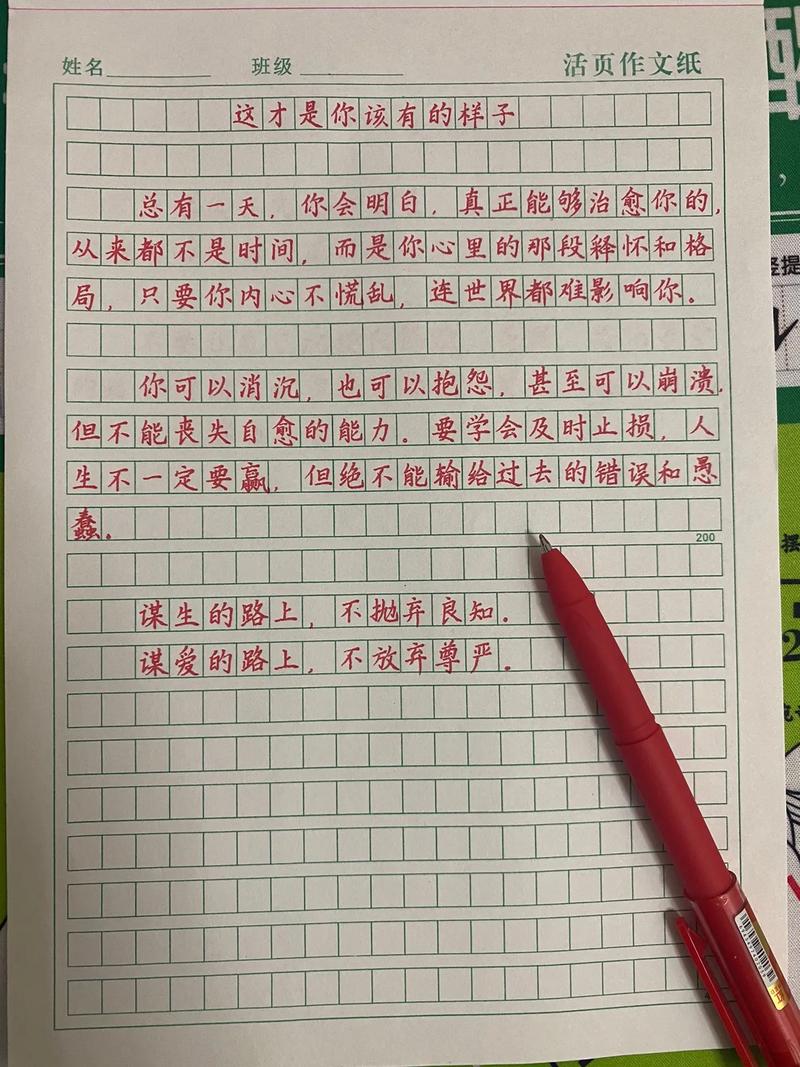 姓名 班级 活页作文纸
这才是你该有的样子
总有一天，你会明白，真正能够治愈你的，
从来都不是时间，而是你心里的那段释怀和格
局，只要你内心不慌乱，连世界都难影响你。
你可以消沉，也可以抱怨，甚至可以崩溃，
但不能丧失自愈的能力。要学会及时止损，人
生不一定要赢，但绝不能输给过去的错误和愚
蠢。
200
谋生的路上，不抛弃良知。
谋爱的路上，不放弃尊严。